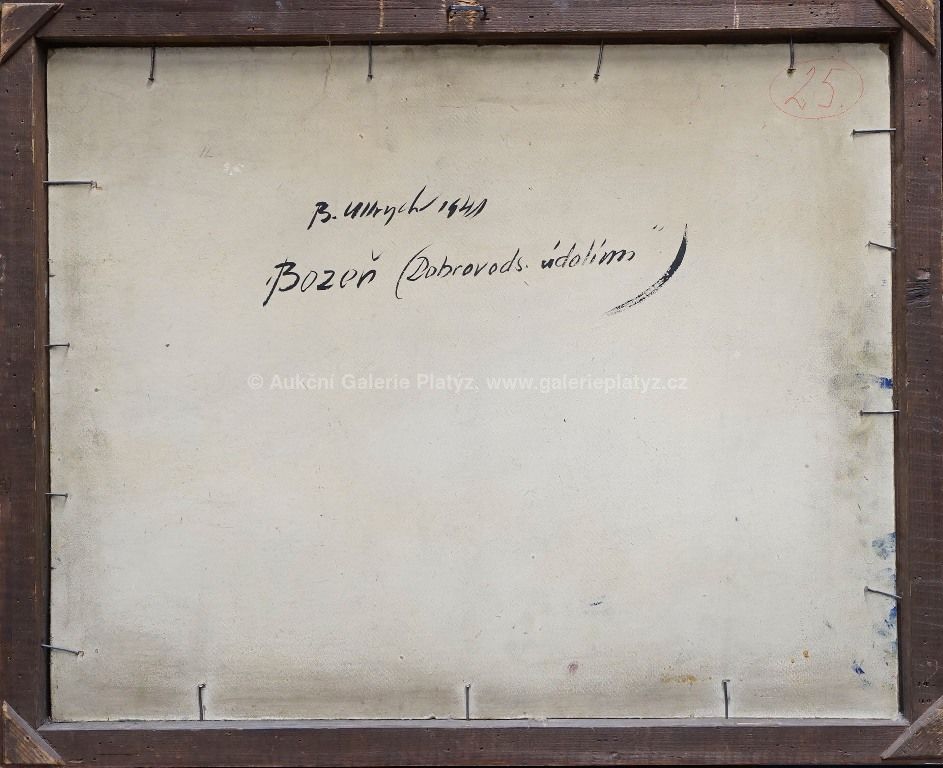 25.
B. Ullrych 1941
„Bozeň (Dobrovods. údolím“)
© Aukční Galerie Platýz, www.galerieplatyz.cz